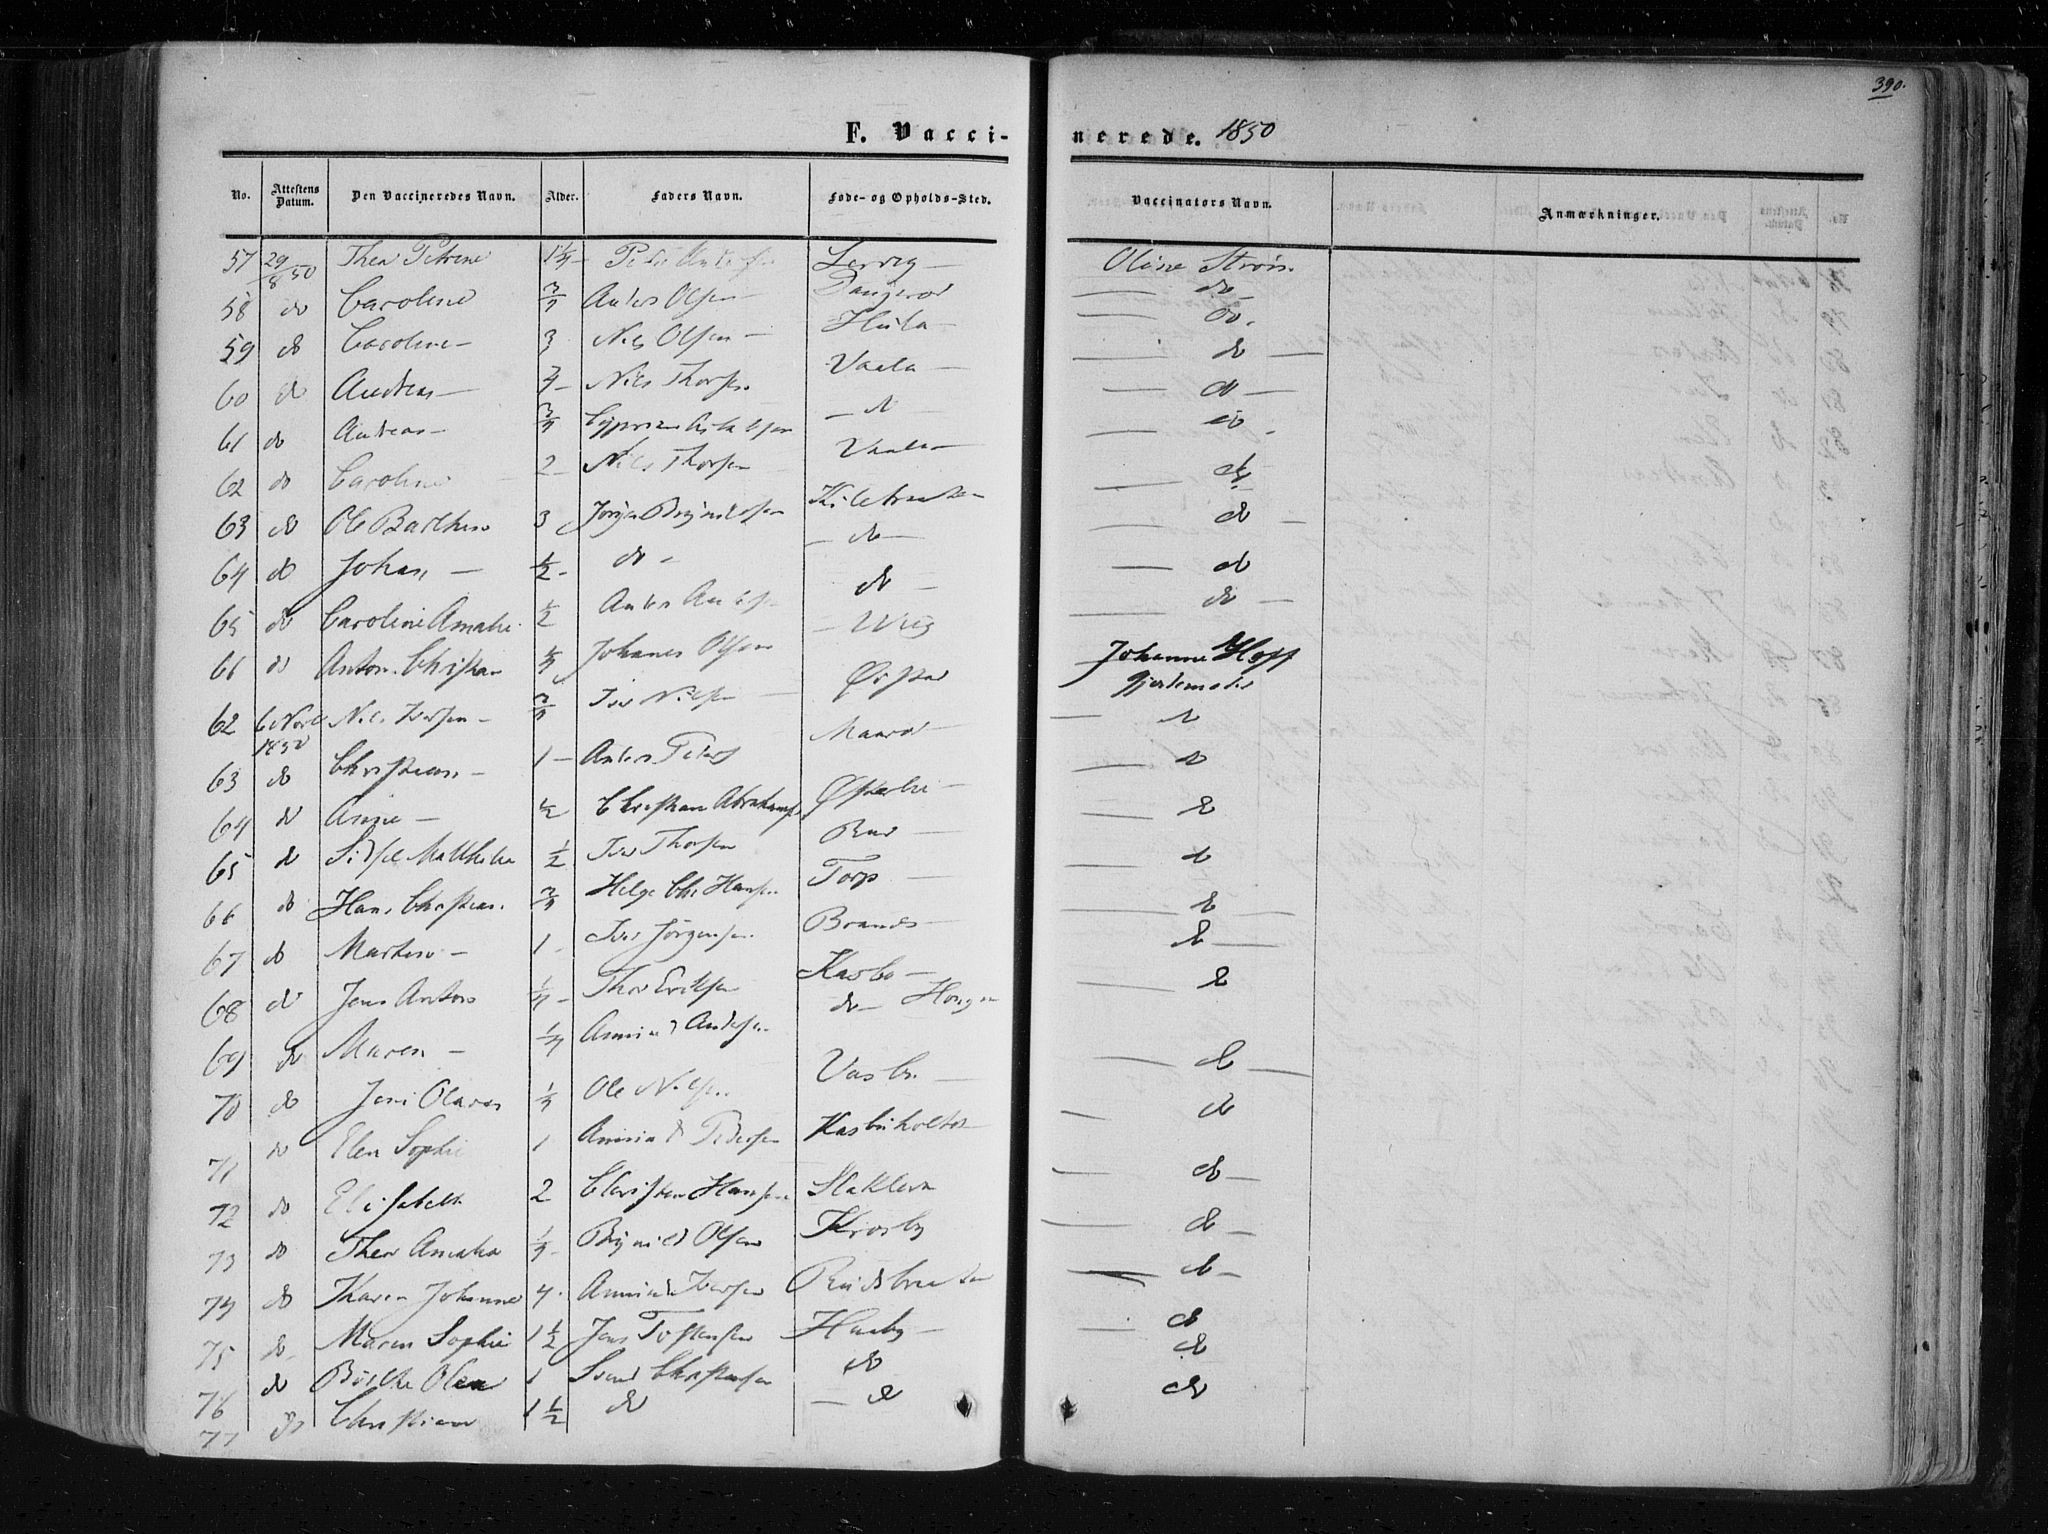 390.
F. Vaccinerede. 1850
No. Attestens Datum. Den Vaccineredes Navn. Alder. Faders Navn. Føde- og Opholds-Sted. Vaccinators Navn. Anmærkninger.
57 29/8 50 Thea Petrine 1 1/4 Peder Anders Lervig — Oline Strøm
58 do Caroline 3/4 Anders Olsen — do —
59 do Caroline — 3 Nils Olsen — Huila — do.
60 do Andreas — 3/4 — Nils Thorsen Vaala — do —
61 do Andreas — 3/4 do — do —
62 do Caroline 2 — Nils Thorsen Vaala do
63 do Ole Barthin 3 Jørgen Brynildsen Kilebraaten do
64 do Johan — 1/2 — do — — do — do —
65 do Caroline Amalie 1/2 Anders Anders do — do
66 do Anton Christian 1/4 Johanes Olsen — Wiig do —
62 6 Novb 1850 Nils Iversen — 3/4 Iver Nilsen — Johanne Hoff Gjordemoder
63 do Christian — 1 — Anders Peders do
64 do Anne — 1/2 Christian Abrahams Østerbie — do
65 do Sidsel Mathilie 1/2 Iver Thorsen Rud — do
66 do Hans Christian 3/4 Helge Chr Hansen Torp — do
67 do Martin — 1 — Iver Jørgensen Brands — do
68 do Jens Anton 1/4 — Thor Eriksen Kasbo — do
69 do Maren — 1/4 Amund Andersen do — Haugen do
70 do Jens Olaves 1/4 Ole Nilsen Vasbo — do
71 do Elen Sophie 1 Amund Pedersen Kasbuholtet do
72 do Elisabeth 2 Christen Hansen do —
73 do Thea Amalia 1/4 — Brynild Olsen Krosby do —
74 do Karen Johanne 4 — Amund Iversen Rudsbraaten do —
75 do — Maren Sophie 1 1/2 Jens Tostensen Huseby — do
76 do Olea 1 Svend Christensen do do
77 do Christian 1 1/2 do — do do